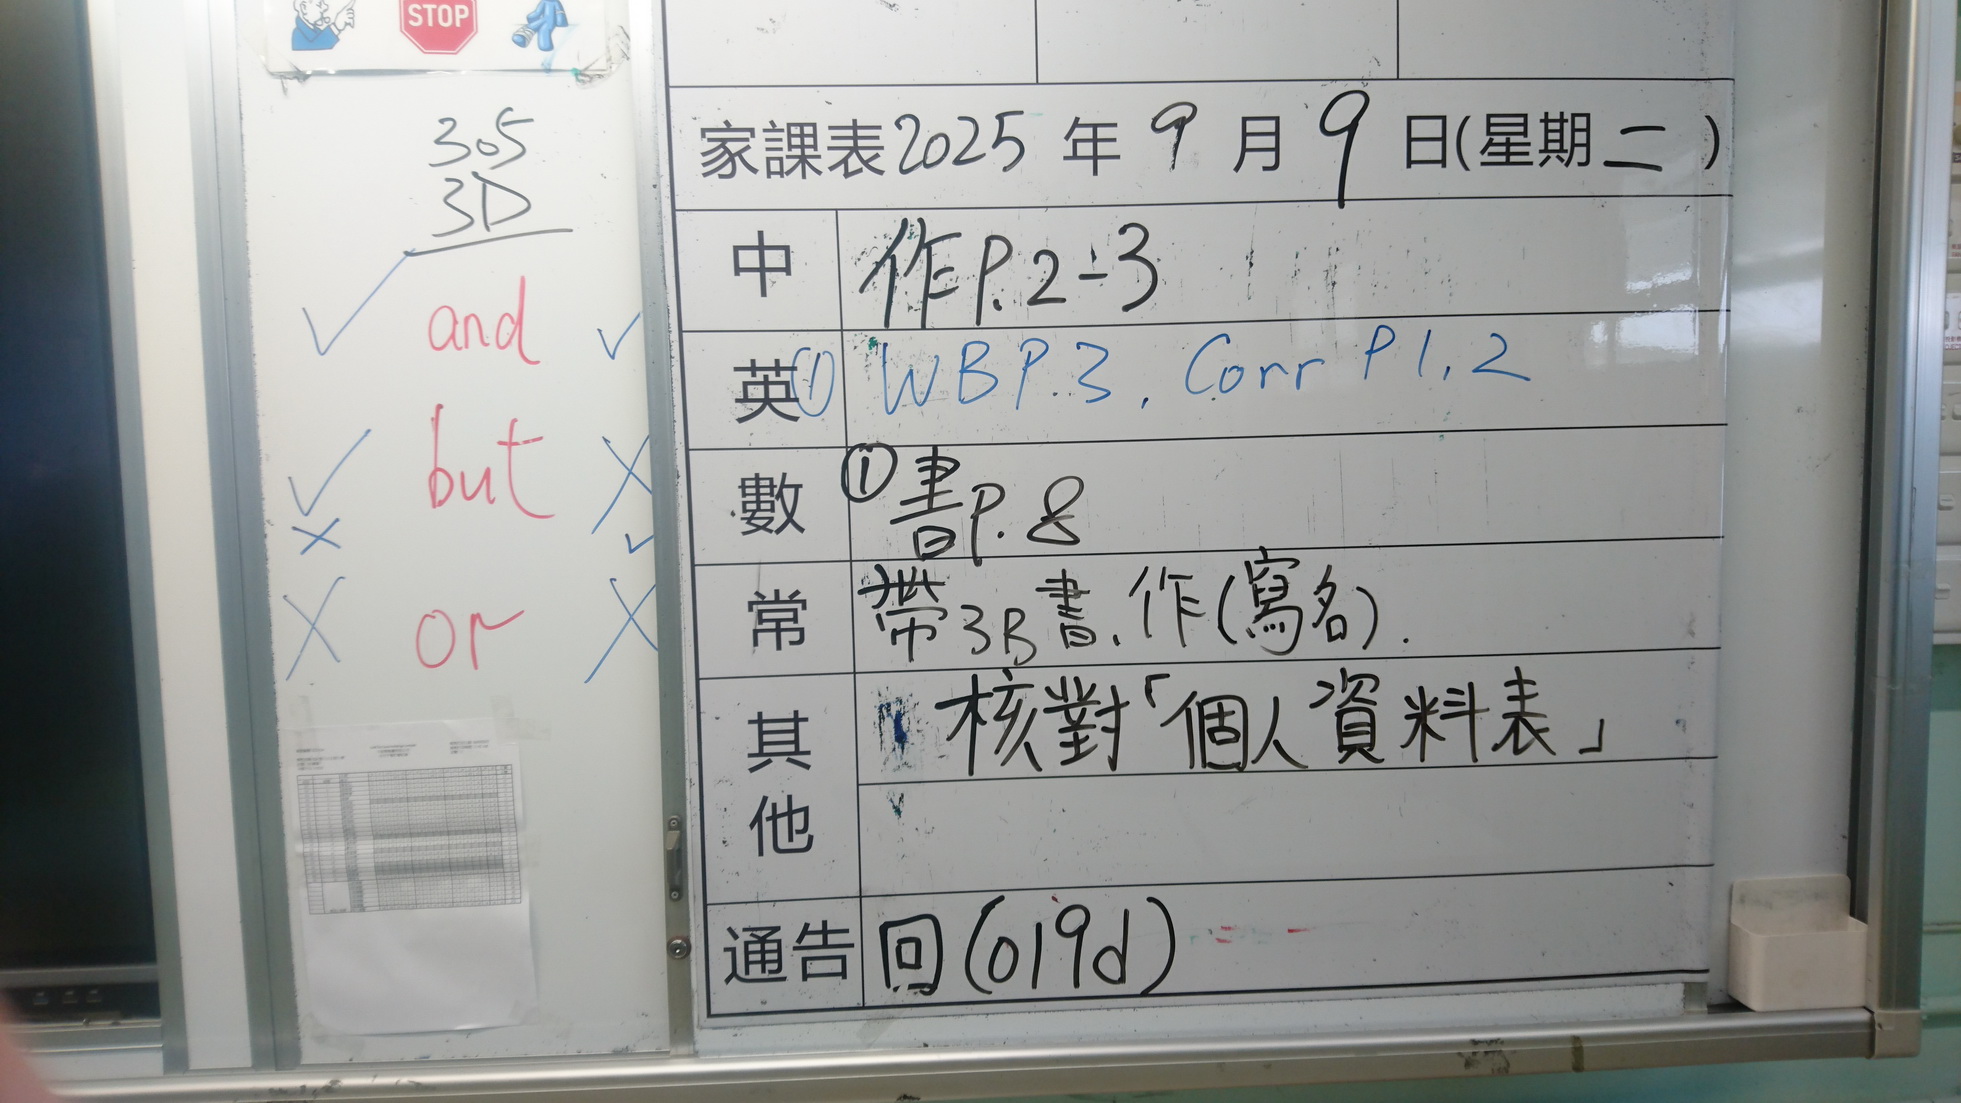 STOP
305
3D
and
but
or
家課表2025年9月9日(星期二)
中 作P.2-3
英 ① WB P.3, Corr P1,2
數 ① 書P.8
常 帶3B書、作(寫名).
其他 核對「個人資料表」
通告 回(019d)